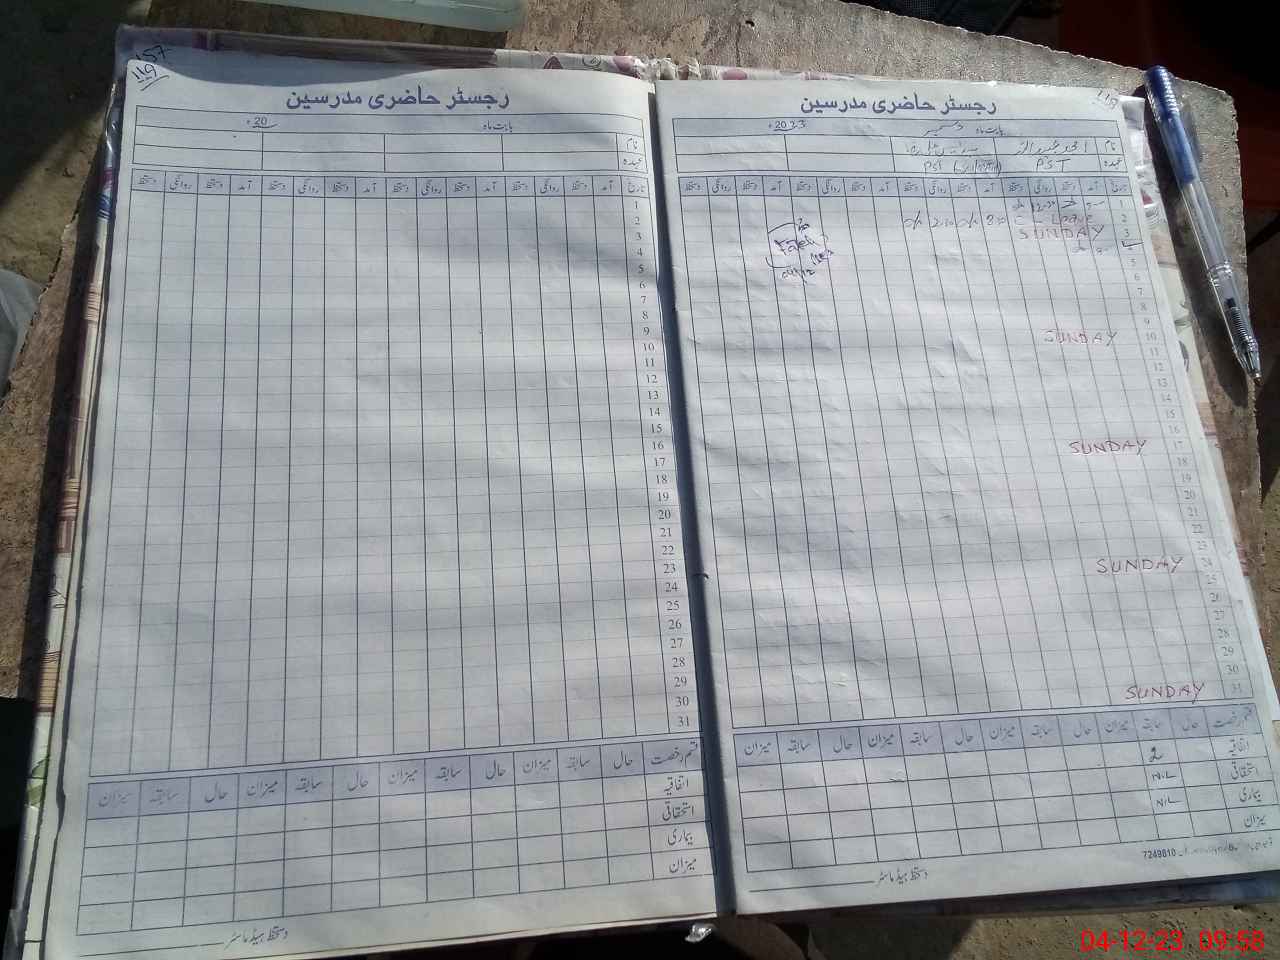 119
رجسٹر حاضری مدرسین
بابت ماہ 20ء
نام
عہدہ
تاریخ آمد دستخط روانگی دستخط آمد دستخط روانگی دستخط آمد دستخط روانگی دستخط آمد دستخط روانگی دستخط
1
2
3
4
5
6
7
8
9
10
11
12
13
14
15
16
17
18
19
20
21
22
23
24
25
26
27
28
29
30
31
قسم رخصت حال سابقہ میزان حال سابقہ میزان حال سابقہ میزان حال سابقہ میزان
اتفاقیہ
استحقاقی
بیماری
میزان
دستخط ہیڈ ماسٹر
118
رجسٹر حاضری مدرسین
بابت ماہ دسمبر 2023ء
نام
عہدہ PST PST
تاریخ آمد دستخط روانگی دستخط آمد دستخط روانگی دستخط آمد دستخط روانگی دستخط آمد دستخط روانگی دستخط
1
2 C - Leave
3 SUNDAY
4
5
6
7
8
9
10 SUNDAY
11
12
13
14
15
16
17 SUNDAY
18
19
20
21
22
23
24 SUNDAY
25
26
27
28
29
30
31 SUNDAY
قسم رخصت حال سابقہ میزان حال سابقہ میزان حال سابقہ میزان حال سابقہ میزان
اتفاقیہ 2
استحقاقی NIL
بیماری NIL
میزان
7249810
دستخط ہیڈ ماسٹر
04-12-23 09:58